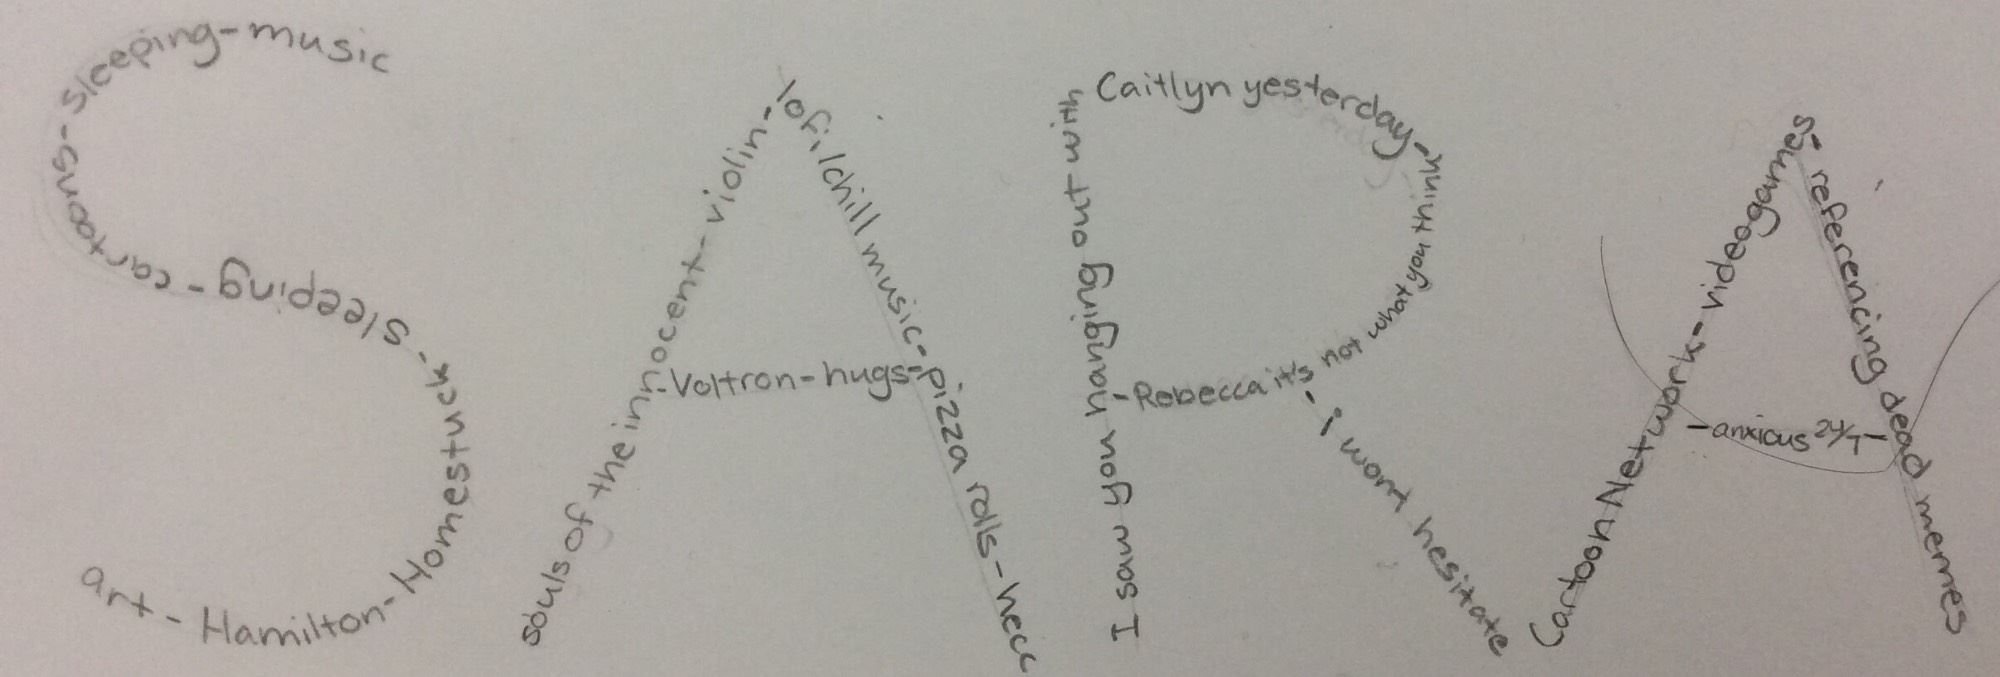 art - Hamilton - Homestuck - sleeping - cartoons - sleeping - music
souls of the innocent - violin - lofi/chill music - pizza rolls - hecc
- Voltron - hugs -
I saw you hanging out with Caitlyn yesterday - Rebecca it's not what you think
- i won't hesitate
Cartoon Network - videogames - referencing dead memes
- anxious 24/7 -